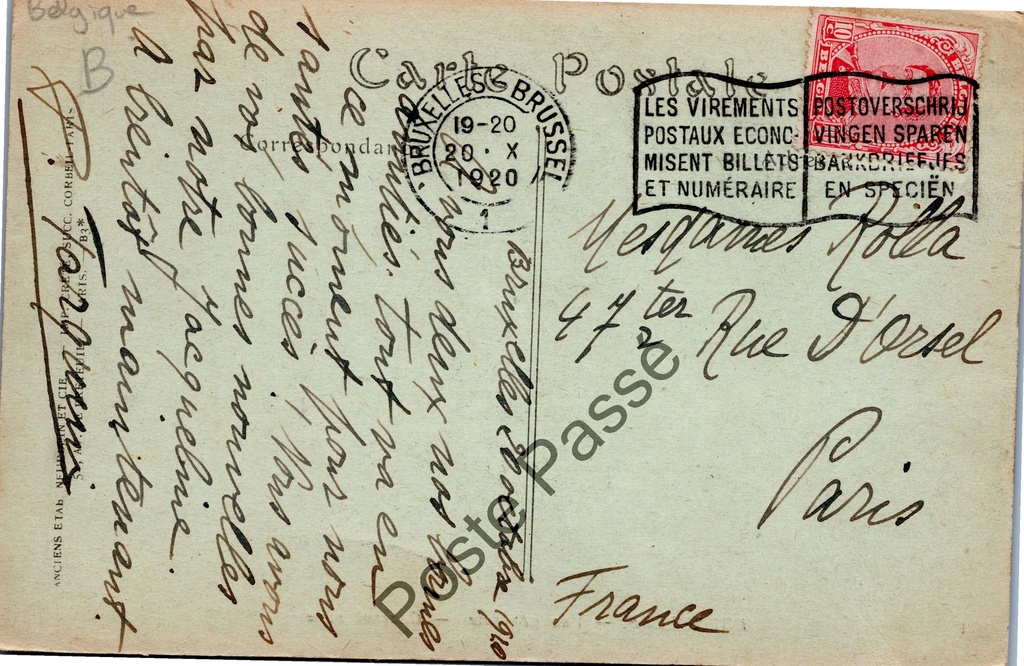 Belgique
B
Carte Postale
Correspondance
BRUXELLES BRUSSEL
19-20
20 · X
1920
1
LES VIREMENTS
POSTAUX ECONO-
MISENT BILLETS
ET NUMÉRAIRE
POSTOVERSCHRIJ
VINGEN SPAREN
BANKBRIEFJES
EN SPECIËN
Mesdames Rolla
47 ter Rue D'Orsel
Paris
France
Bruxelles 20 octobre 1920
A vous deux nos bonnes
amitiés. tout va en
ce moment pour nous
santés, succès, Nous avons
de vos bonnes nouvelles
par notre Jacqueline.
A bientôt maintenant
ANCIENS ETAB NEURDEIN ET CIE
SUCC. CORBEIL-PARIS
PARIS. B3*
Poste Passé